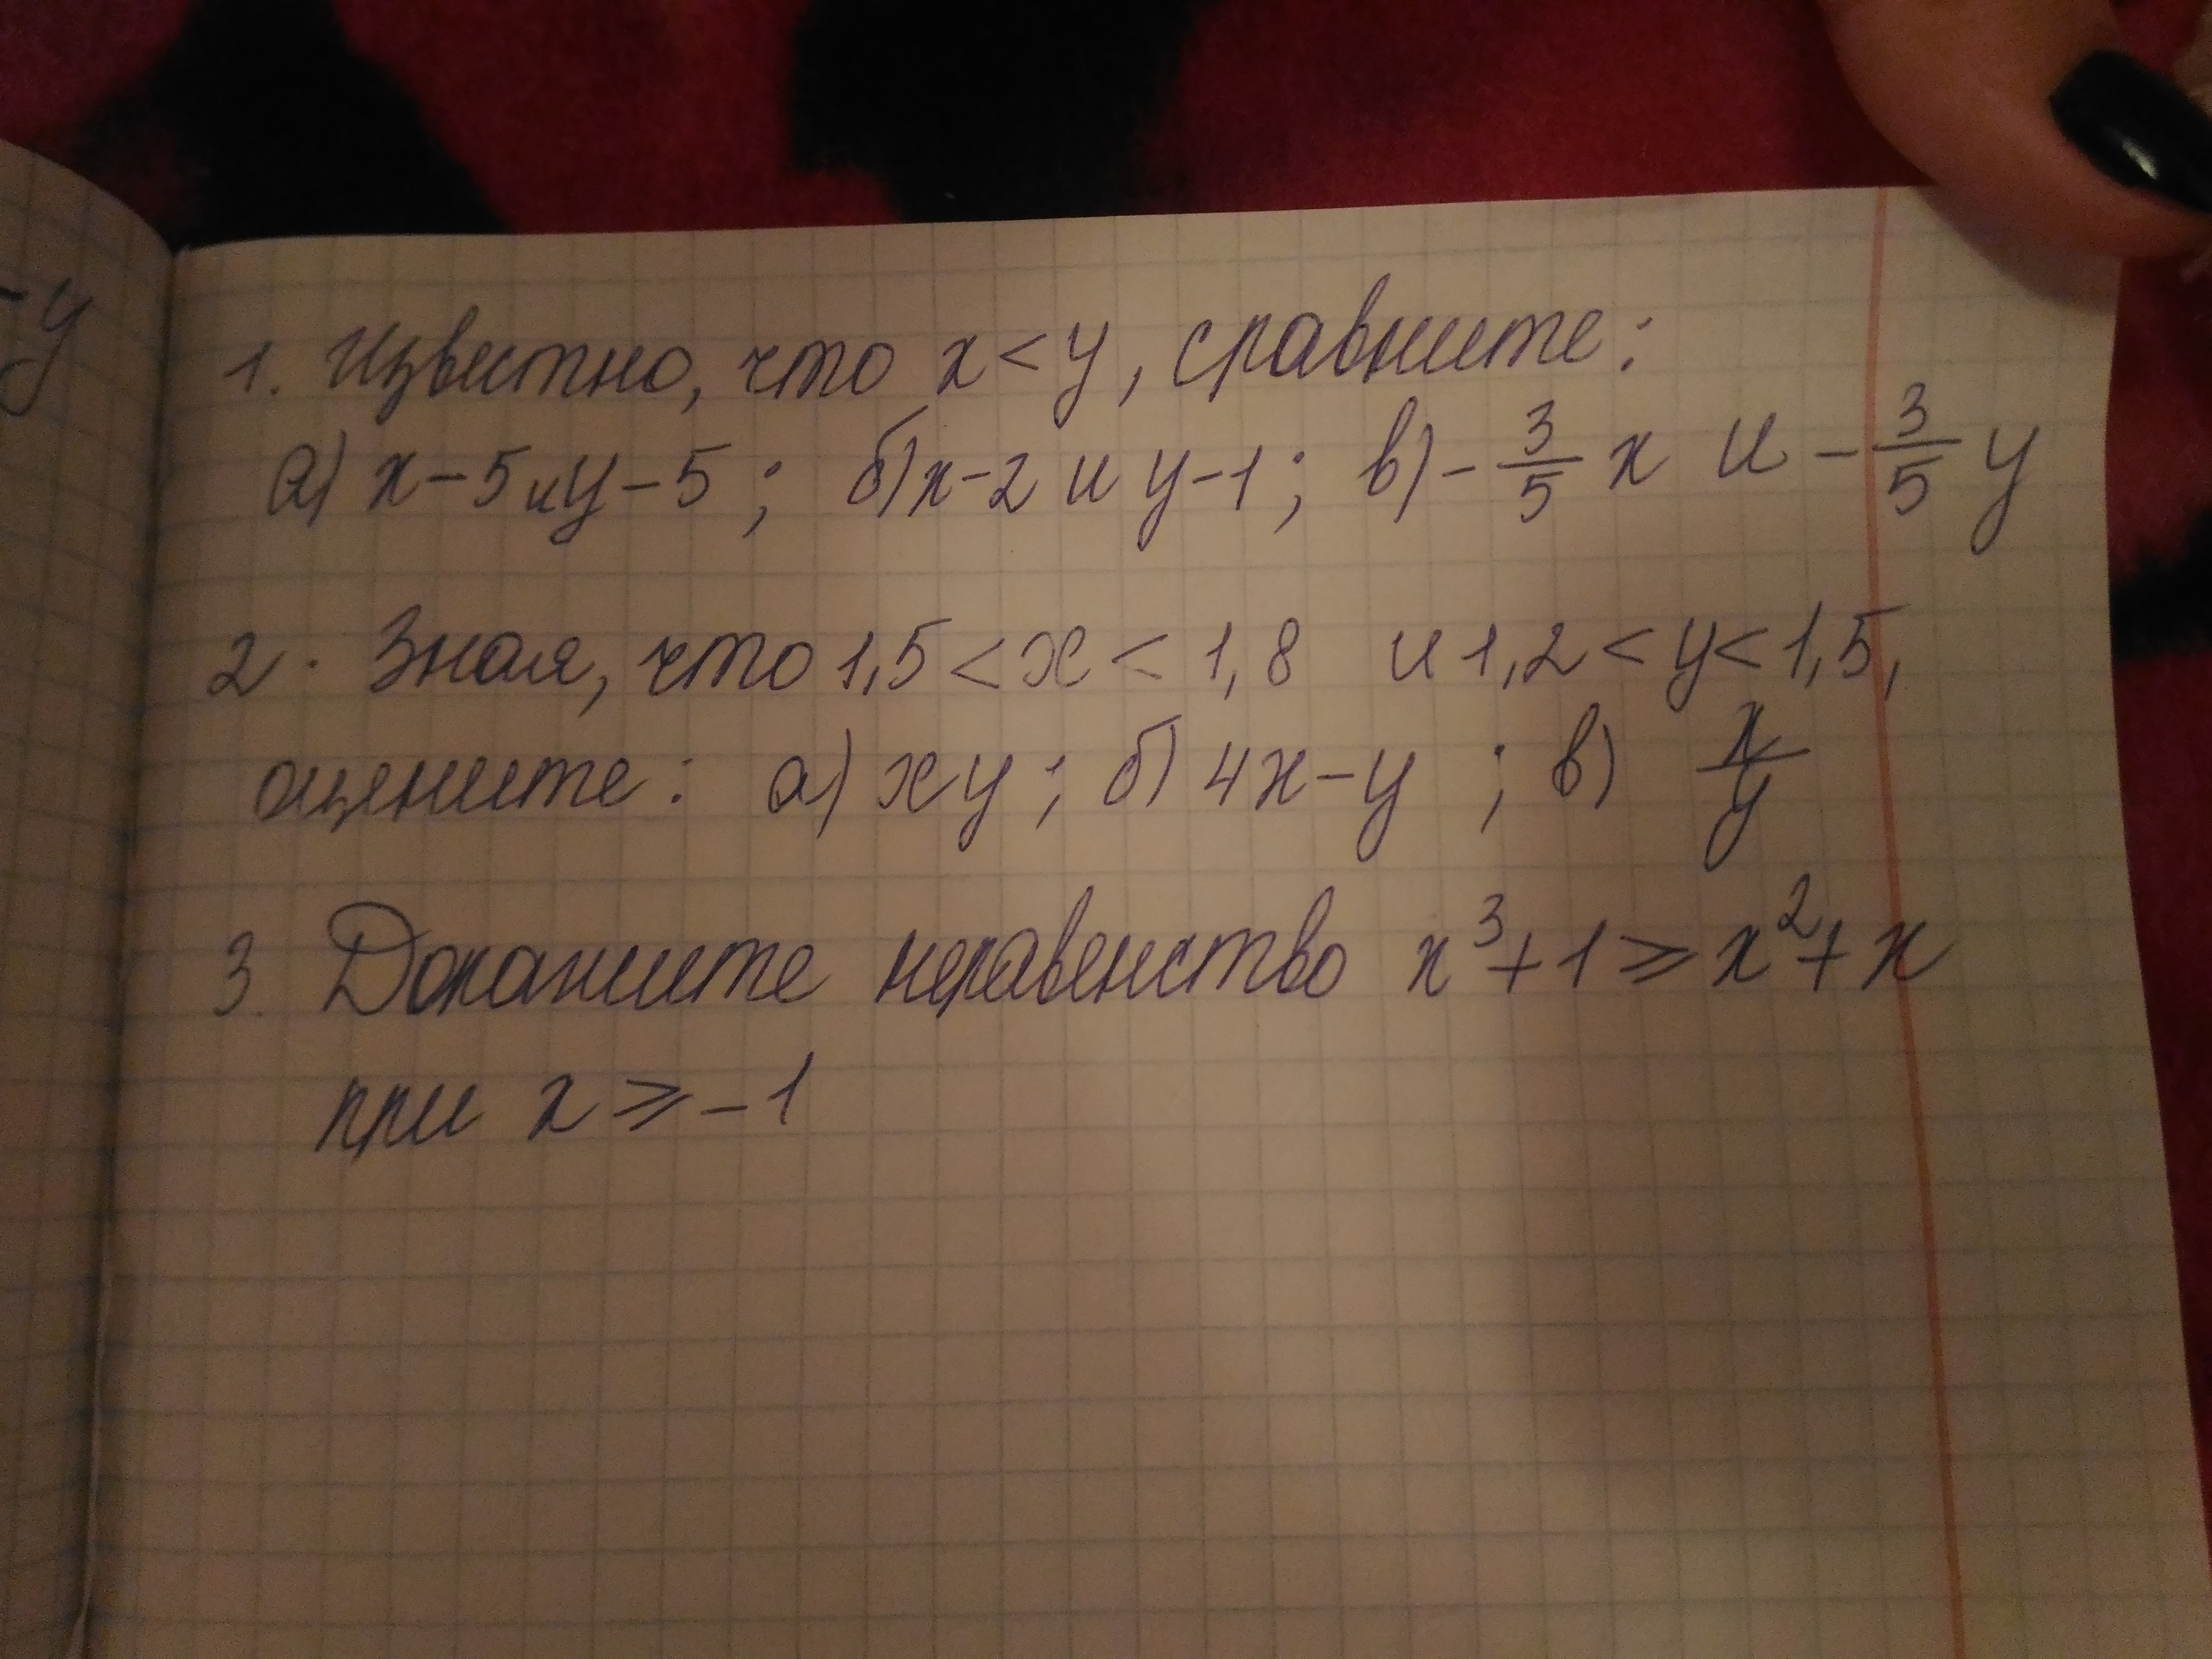 -y
1. Известно, что x < y, сравните:
а) x - 5 и y - 5; б) x - 2 и y - 1; в) - 3/5 x и - 3/5 y
2. Зная, что 1,5 < x < 1,8 и 1,2 < y < 1,5,
оцените: а) xy; б) 4x - y; в) x/y
3. Докажите неравенство x³ + 1 ⩾ x² + x
при x ⩾ -1